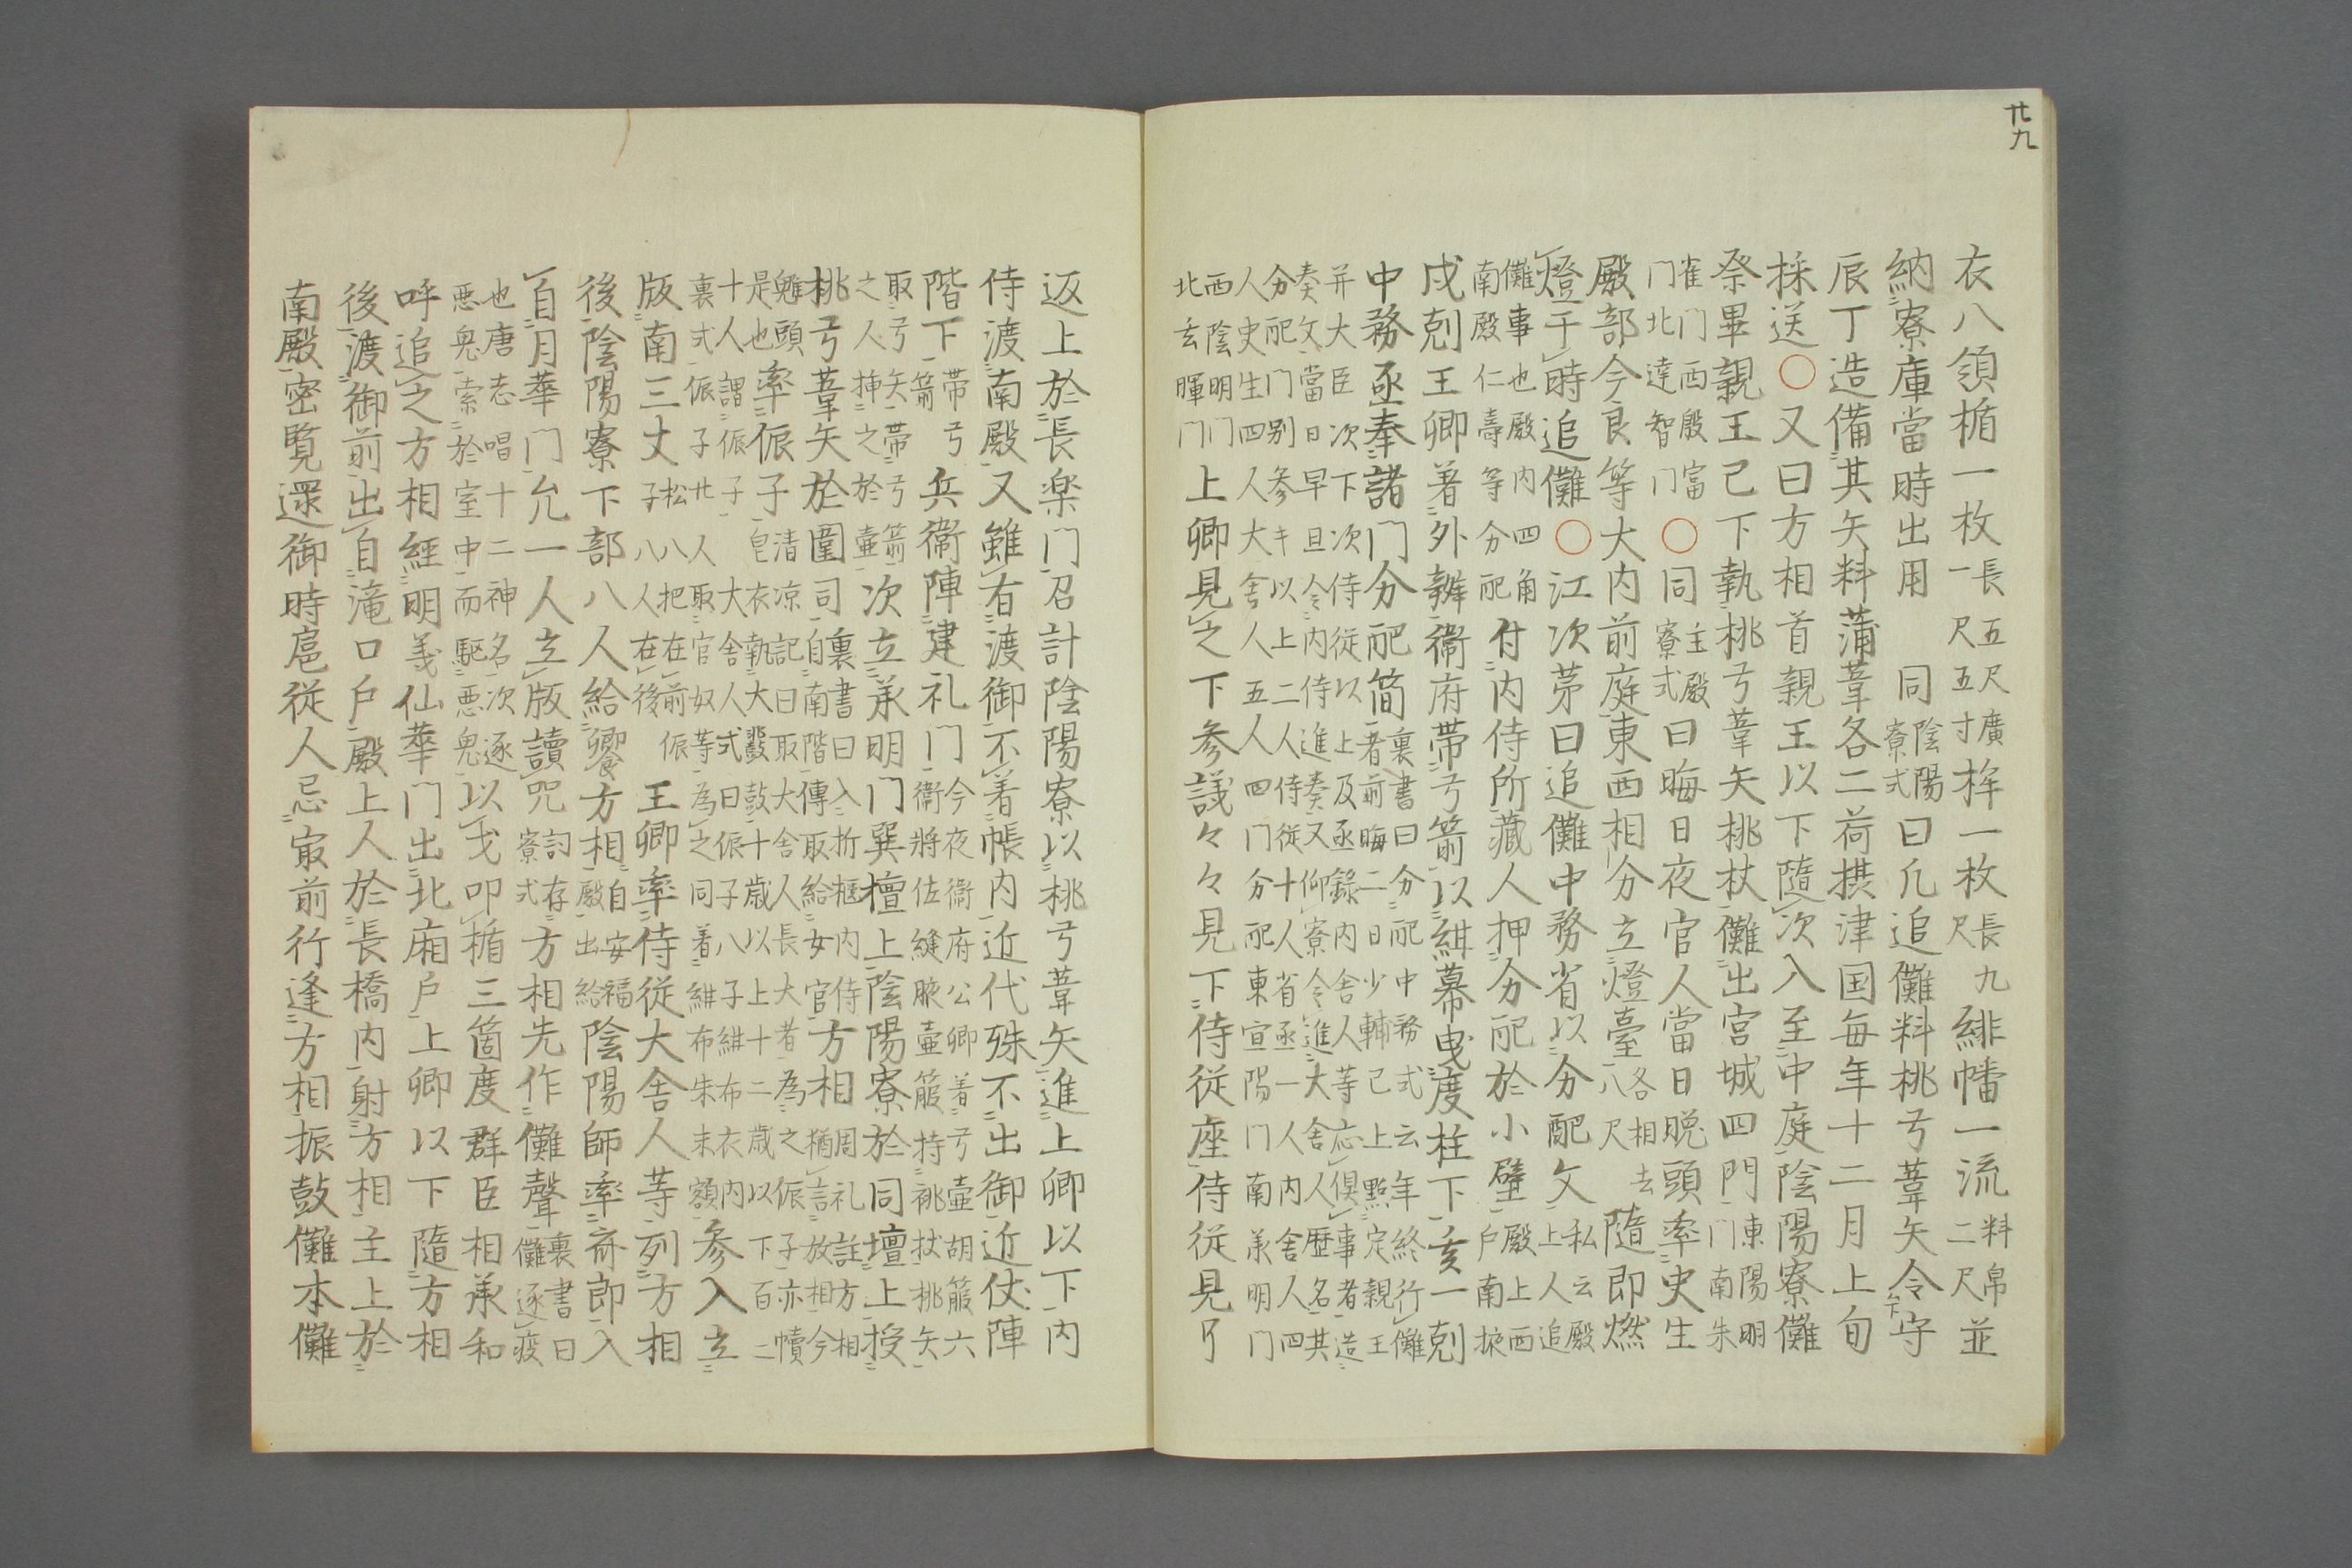 廿九
衣八領楯一枚長五尺廣一尺五寸桙一枚長九尺緋幡一流料帛二尺並
納寮庫當時出用 同陰陽寮式曰凢追儺料桃弓葦矢令守
辰丁造備其矢料蒲葦各二荷摂津国毎年十二月上旬
採送○又曰方相首親王以下隨次入至中庭陰陽寮儺
祭畢親王已下執桃弓葦矢桃杖儺出宮城四門東陽明門南朱
雀门西殷富门北達智门○同主殿寮式曰晦日夜官人當日晩頭率史生
殿部今良等大内前庭東西相分立燈臺各相去八尺隨即燃
燈于時追儺○江次茅曰追儺中務省以分配文私云殿上人追
儺事也殿内四角南殿仁壽等分配付内侍所藏人押分配於小壁殿上西戸南掖
戌剋王卿著外辨衛府帯弓箭以紺幕曳度柱下亥一剋
中務丞奉諸门分配简裏書曰分配中務式云年終行儺者前晦二日少輔已上點定親王
并大臣次下次侍従以上及丞錄内舎人等応俱事者造奏文當日早旦令内侍進奏又仰寮令進大舎人歴名其
分配门别参キ以上二人侍従十人省丞一人内舎人四人史生四人大舎人五人四门分配東宣陽门南承明门
西陰明门北玄暉门上卿見之下参議々々見下侍従座侍従見了
返上於長楽门召計陰陽寮以桃弓葦矢進上卿以下内
侍渡南殿又雖有渡御不著帳内近代殊不出御近仗陣
階下帯弓箭兵衛陣建礼门今夜衛府公卿着弓壺胡箙六衛將佐縫腋壺箙持桃杖桃矢
取弓矢帯弓箭之人挿之於壷次立承明门巽檀上陰陽寮於同壇上授
桃弓葦矢於圍司裏書曰入折櫃内侍自南階傳取給女官方相周礼註方相猶言放相今
魌頭是也率侲子清凉記曰取大舎人長大者為之侲子亦幘皂衣執大鼗鼓十歳以上十二歳以下百二
十人謂侲子大舎人式曰侲子八子紺布衣内裏式侲子廿人取官奴等為之同着紺布朱末額参入立
版南三丈松八把在前侲子八人在後王卿率侍従大舎人等列方相
後陰陽寮下部八人給饗方相自安福殿出給陰陽師率斎郎入
自月華门允一人立版讀咒詞存寮式方相先作儺聲裏書曰儺逐疫
也唐志唱十二神名次逐悪鬼索於室中而駆悪鬼以戈叩楯三箇度群臣相承和
呼追之方相經明義仙華门出北廂戸上卿以下隨方相
後渡御前出自滝口戸殿上人於長橋内射方相主上於
南殿密覧還御時扈従人忌㝡前行逢方相振鼓儺本儺